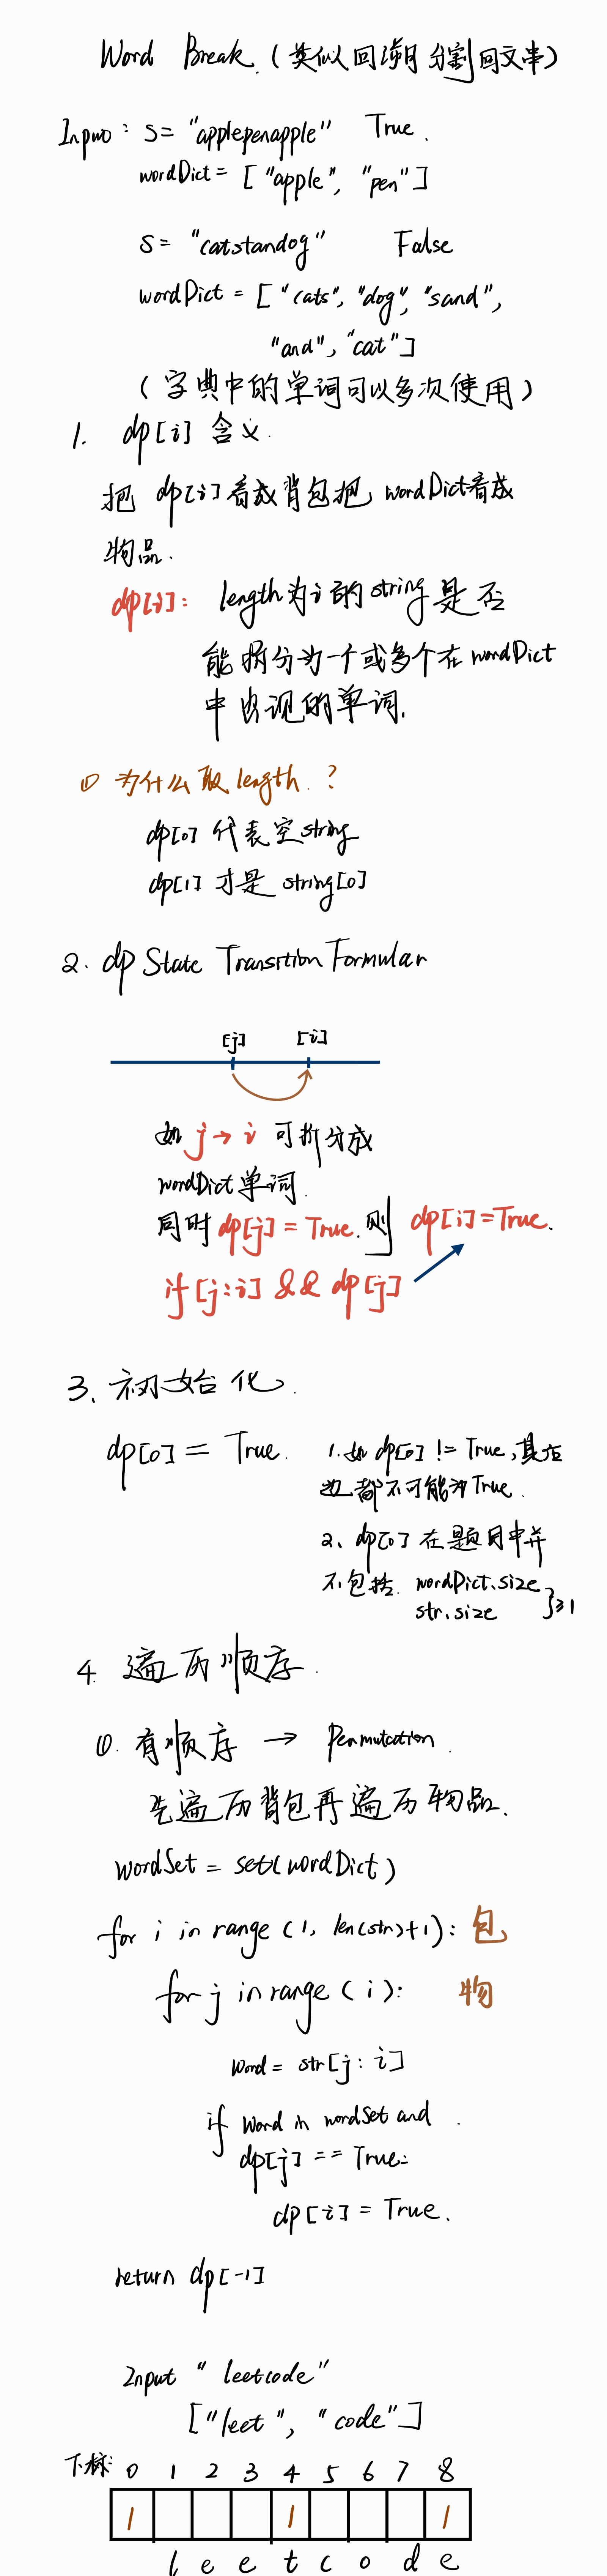 Word Break.(类似回溯月分割回文串)
Inpuo: s= "applepenapple" True.
wordDict = ["apple", "pen"]
s= "catstandog" False
wordDict = ["cats", "dog", "sand",
"and", "cat"]
(字典中的单词可以多次使用)
1. dp[i] 含义.
把 dp[i]看成背包把 wordDict看成
物品.
dp[i]: length为i的string是否
能拆分为一个或多个在wordDict
中出现的单词.
① 为什么取length.?
dp[0] 代表空string
dp[1] 才是 string[0]
2. dp State Transition Formular
[j] [i]
如 j→i 可拆分成
wordDict单词.
同时dp[j]=True.则 dp[i]=True.
if [j:i] && dp[j]
3. 初始化.
dp[0] = True. 1.如dp[0] != True,其后
边都不可能为True.
2、dp[0]在题目中并
不包括. wordDict.size
str.size }≥1
4. 遍历顺序.
①. 有顺序 → Permutation.
先遍历背包再遍历物品.
wordSet = set(wordDict)
for i in range (1, len(str)+1): 包
for j in range (i): 物
word = str[j:i]
if word in wordSet and.
dp[j] == True:
dp[i] = True.
return dp[-1]
Input "leetcode"
["leet", "code"]
下标: 0 1 2 3 4 5 6 7 8
1 1 1
l e e t c o d e